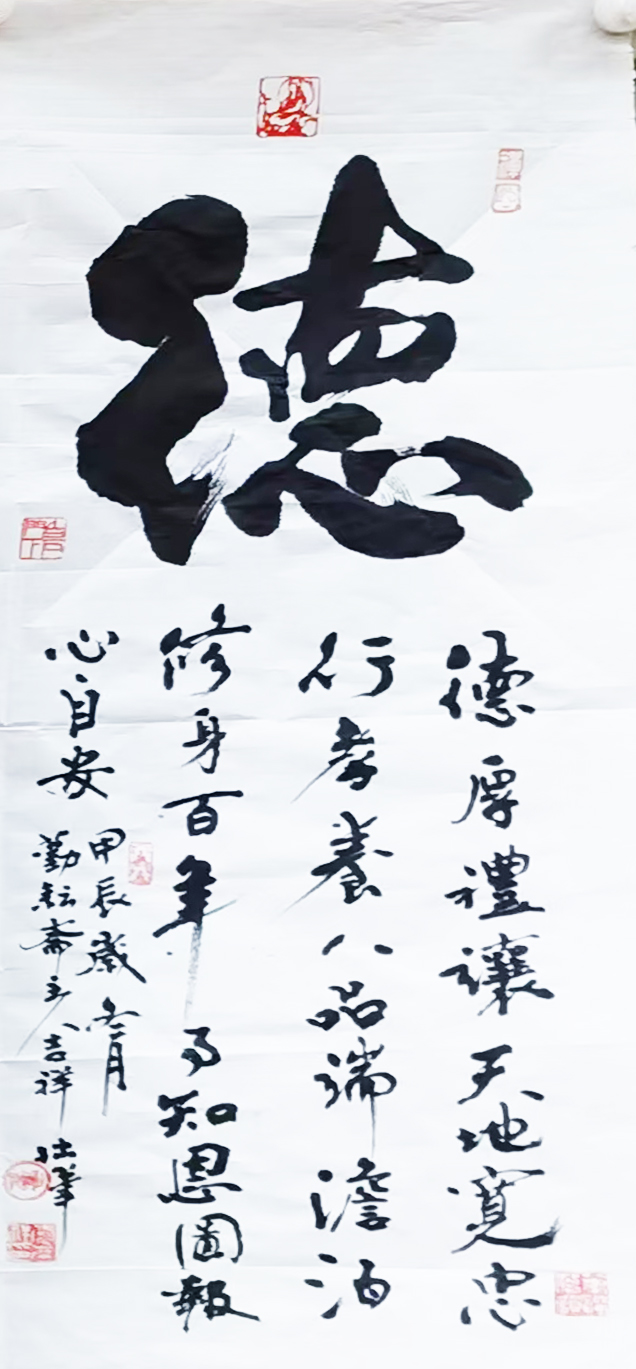 德
德厚禮讓天地寬忠
行孝養人品端澹泊
修身百年事知恩圖報
心自安
甲辰歲
勤耘齋主吉祥拙筆